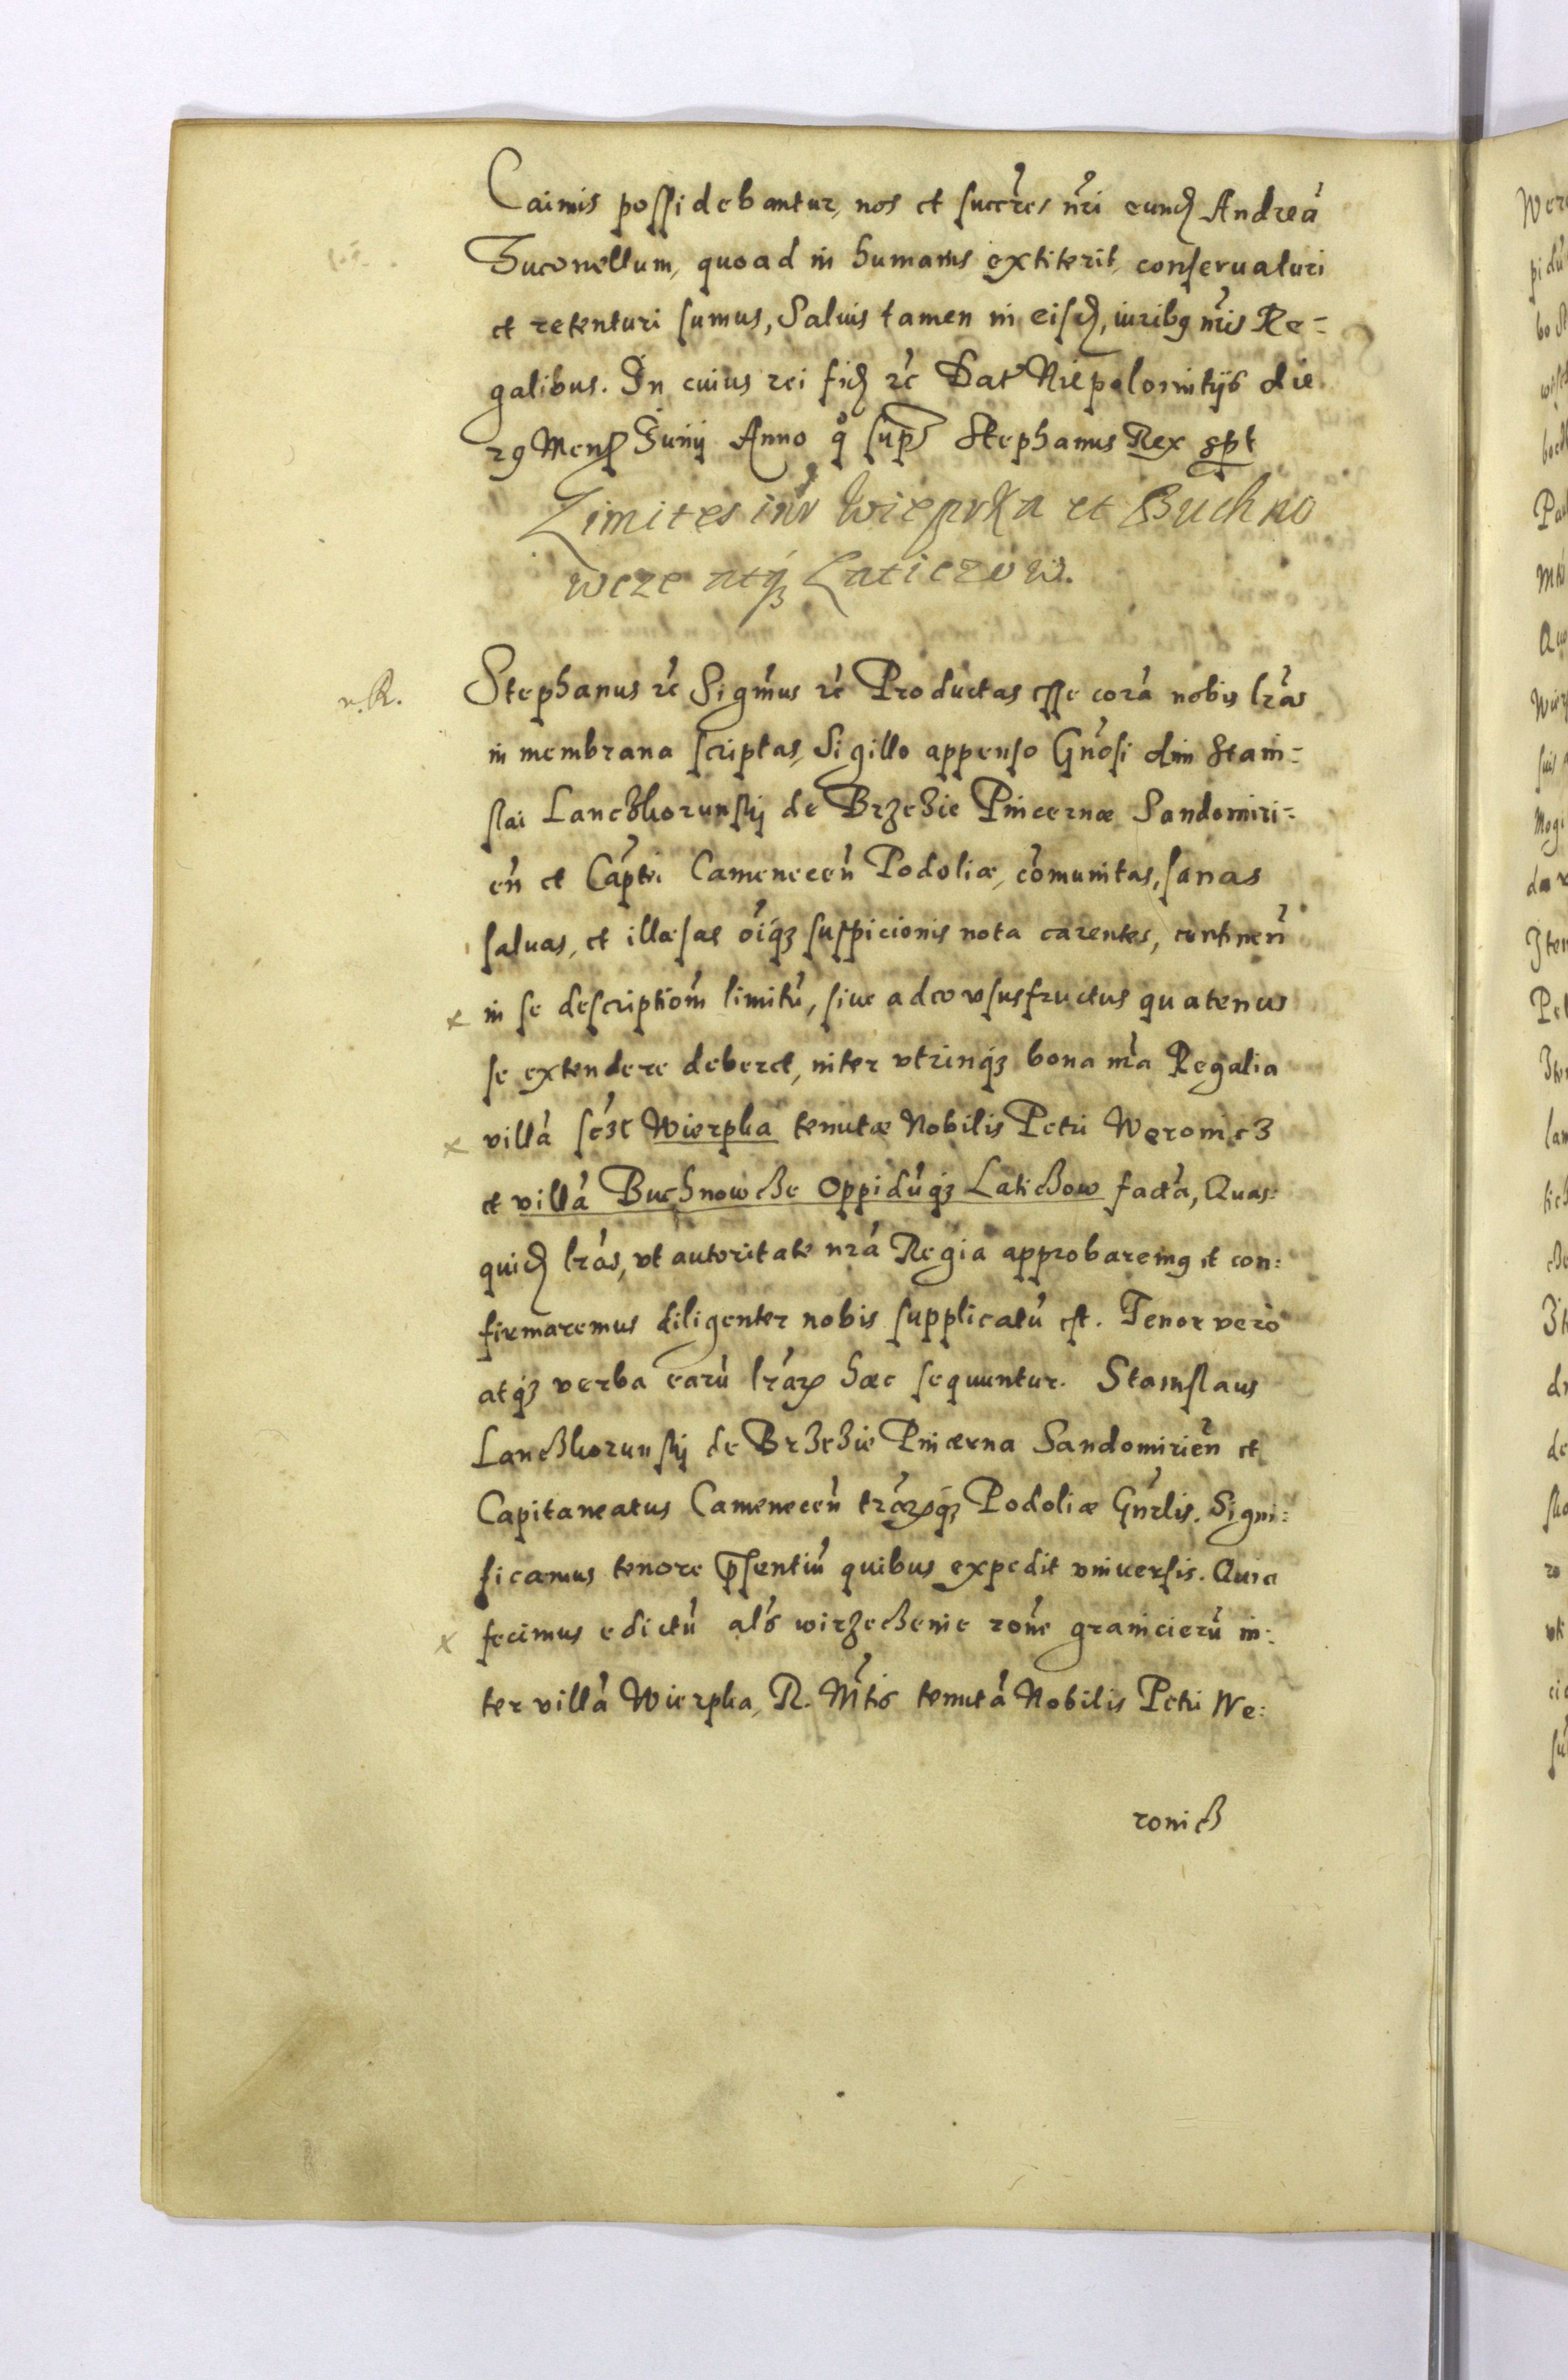 Caimis possidebantur, nos et succr̃es nr̃i eund Andreã
Buconellum, quoad in humanis extiterit, conseruaturi
et retenturi sumus, Saluis tamen in eisd, iuribq nr̃is Re=
galibus. In cuius rei fid rc̃ Dat Niepolomitÿs die
29 Mens Iunij Anno q° sups Stephanus Rex spt
Limites inr̃ Wierpka et Buchno
wcze atq3 Laticzow.
v. R.
Stephanus rc̃ Sigm̃us rc̃ Productas esse corã nobis lr̃as
in membrana scriptas, Sigillo appenso Gnõsi dni Stani=
slai Lanczkorunskj de Brzezie Pincernæ Sandomiri=
eñ et Cãptei Cameneceñ Podoliæ, cõmunitas, sanas
saluas, et illæsas oĩq3 suspicionis nota carentes, continen̄
x in se descriptiom̃ limitũ, siue adeo vsusfructus quatenus
se extendere deberet, inter vtrinq3 bona nr̃a Regalia
x villã sc̃zt Wierpka tenutæ Nobilis Petri Weronicz
et villã Buchnowcze Oppidũq3 Latichow factã, Quas=
quid lr̃as, vt autoritate nr̃a Regia approbaremq et con=
firmaremus diligenter nobis supplicatũ est. Tenor verò
atq3 verba earũ lr̃ar hæc sequuntur. Stanislaus
Lanczkorunskj de Brzezie Pincerna Sandomirieñ et
Capitaneatus Cameneceñ tr̃arq3 Podoliæ Gnr̃lis. Signi=
ficamus tenore p̄sentiũ quibus expedit vniuersis. Quia
x fecimus edictũ al's wirzeczenie rom̃e granicierũ in=
ter villã Wierpka, R. Mtis tenutã Nobilis Petri We=
ronicz